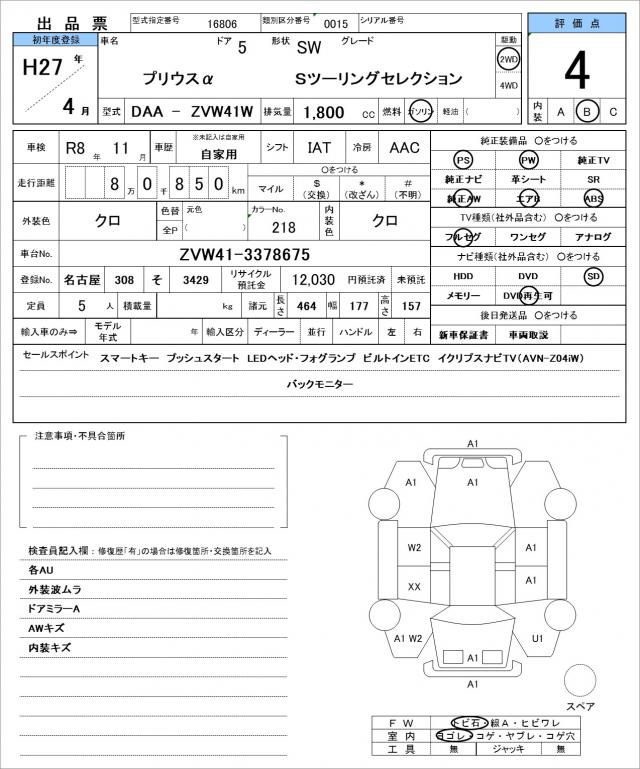 出品票 型式指定番号 16806 類別区分番号 0015 シリアル番号 評価点
初年度登録 車名 ドア 5 形状 SW グレード 駆動
H27 年 プリウスα Sツーリングセレクション 2WD 4
4WD
4 月 型式 DAA - ZVW41W 排気量 1,800 cc 燃料 ガソリン 軽油 ( ) 内装 A B C
車検 R8 年 11 月 車歴 ※未記入は自家用 自家用 シフト IAT 冷房 AAC
走行距離 8 万 0 千 8 5 0 km 〇をつける
マイル $ (交換) * (改ざん) # (不明)
外装色 クロ 色替 元色 カラーNo. 内装色 クロ
全P ( ) 218
車台No. ZVW41-3378675
登録No. 名古屋 308 そ 3429 リサイクル預託金 12,030 円預託済 未預託
定員 5 人 積載量 kg 諸元 長さ 464 幅 177 高さ 157
輸入車のみ⇒ モデル年式 年 輸入区分 ディーラー 並行 ハンドル 左 右
純正装備品 〇をつける
PS PW 純正TV
純正ナビ 革シート SR
純正AW エアB ABS
TV種類(社外品含む) 〇をつける
フルセグ ワンセグ アナログ
ナビ種類(社外品含む) 〇をつける
HDD DVD SD
メモリー DVD再生可
後日発送品 〇をつける
新車保証書 車両取説
セールスポイント スマートキー プッシュスタート LEDヘッド・フォグランプ ビルトインETC イクリプスナビTV(AVN-Z04iW)
バックモニター
注意事項・不具合箇所
検査員記入欄：修復歴「有」の場合は修復箇所・交換箇所を記入
各AU
外装波ムラ
ドアミラーA
AWキズ
内装キズ
A1
A1 A1 A1
W2 A1
XX A1
A1 W2 U1
A1
A1
スペア
FW トビ石・線A・ヒビワレ
室内 ヨゴレ・コゲ・ヤブレ・コゲ穴
工具 無 ジャッキ 無